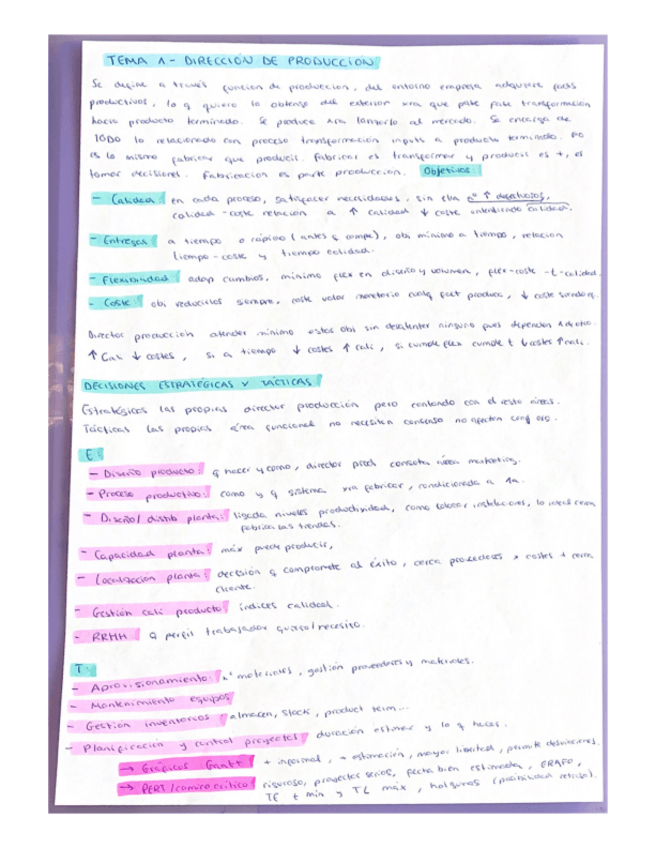 TEMA 1 - DIRECCIÓN DE PRODUCCIÓN
Se define a través función de producción, del entorno empresa adquiere facts
productivos, lo q quiero lo obtengo del exterior xra que pase fase transformación
hacia producto terminado. Se produce xra lanzarlo al mercado. Se encarga de
TODO lo relacionado con proceso transformación inputs a producto terminado. No
es lo mismo fabricar que producir. Fabricar es transformar y producir es +, es
tomar decisiones. Fabricación es parte producción. Objetivos:
- Calidad: en cada proceso, satisfacer necesidades, sin ella ↑ desechos,
calidad-coste relación a ↑ calidad ↓ coste entendiendo calidad.
- Entregas a tiempo o rápido (antes q compe), obj mínimo a tiempo, relación
tiempo-coste y tiempo calidad.
- Flexibilidad: adap cambios, mínimo flex en diseño y volumen, flex-coste -t-calidad.
- Coste: obj reducirlos siempre, coste valor monetario fact produce, ↓ coste
Director producción atender mínimo estos obj sin desatender ninguno pues dependen
↑ Cal ↓ costes, si a tiempo ↓ costes ↑ cali, si cumple flex cumple t ↓ costes ↑ cali.
DECISIONES ESTRATÉGICAS Y TÁCTICAS
Estratégicas las propias director producción pero contando con el resto áreas.
Tácticas las propias área funcional no necesitan consenso no afectan
E:
- Diseño producto: q hacer y como, director prod consulta área marketing.
- Proceso productivo: como y q sistema xra fabricar, condicionada a 1a.
- Diseño/distrib planta: ligada niveles productividad, como colocar instalaciones, lo ideal
fabrica las tiendas.
- Capacidad planta: máx puede producir,
- Localización planta: decisión q compromete al éxito, cerca proveedores x costes + cerca
cliente.
- Gestión cali producto índices calidad.
- RRHH q perfil trabajador quiero/necesito.
T:
- Aprovisionamiento: materiales, gestión proveedores y materiales.
- Mantenimiento equipos
- Gestión inventarios almacen, stock, product term...
- Planificación y control proyectos duración estimar y lo q haces.
→ Gráficos Gantt + informal, + estimación, mayor libertad, permite desviaciones.
→ PERT/camino crítico riguroso, proyectos serios, fecha bien estimada, GRAFO,
TE t min y TL máx, holguras (posibilidad retraso).